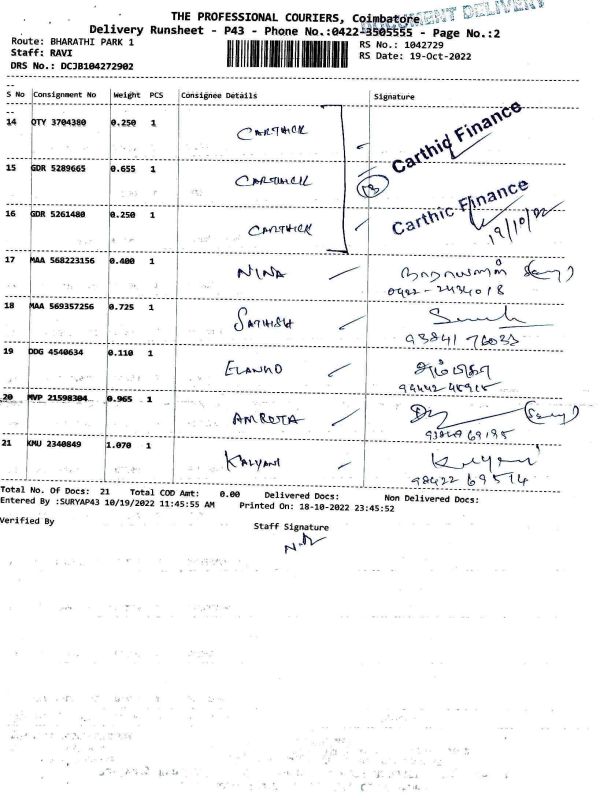 THE PROFESSIONAL COURIERS, Coimbatore
DOCUMENT DELIVERY
Delivery Runsheet - P43 - Phone No.:0422-3505555 - Page No.:2
Route: BHARATHI PARK 1 RS No.: 1042729
Staff: RAVI RS Date: 19-Oct-2022
DRS No.: DCJB104272902
S No Consignment No Weight PCS Consignee Details Signature
14 QTY 3704380 0.250 1 CARTHICK Carthid Finance
15 GDR 5289665 0.655 1 CARTHICK
16 GDR 5261480 0.250 1 CARTHICK Carthic Finance
19/10/22
17 MAA 568223156 0.400 1 NINA
0422-2434018
18 MAA 569357256 0.725 1 SATHISH
93841 76033
19 DDG 4540634 0.110 1 ELANGO
20 MVP 21598304 0.965 1 AMRUTA
21 KMU 2340849 1.070 1 KALYANI Kalyani
98422 69514
Total No. Of Docs: 21 Total COD Amt: 0.00 Delivered Docs: Non Delivered Docs:
Entered By :SURYAP43 10/19/2022 11:45:55 AM Printed On: 18-10-2022 23:45:52
Verified By Staff Signature